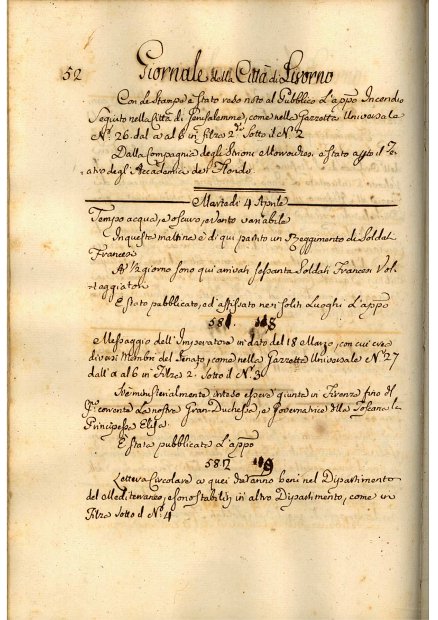 52
Giornale della Città di Livorno
Con le Stampe è Stato reso noto al Pubblico l'appo Incendio
Seguito nella Città di Gerusalemme, come nella Gazzetta Universale
N.º 26. dal a al b in filza 2.ª Sotto il N.º 2
Dalla Compagnia degli Istrioni è Stato apto il Te-
atro degl'Accademici de'
Martedì 4 Aprile
Tempo acqua, e oscuro, e vento variabile
In questa mattina è di qui partito un Reggimento di Soldati
Francesi
A ½ giorno sono qui arrivati sessanta Soldati Francesi Vol-
teggiatori
È Stato pubblicato, ed affissato nei soliti Luoghi l'appo
581. 118
Messaggio dell'Imperatore in dato del 18 Marzo, con cui crea
diversi Membri del Senato, come nella Gazzetta Universale N.º 27
dall'a al b in Filza 2. Sotto il N.º 3
Si è ministerialmente inteso essere giunta in Firenze fino del
P.º corrente la nostra Gran-Duchessa, e Governatrice della Toscana la
Principessa Elisa.
È Stata pubblicata l'appo
582 119
Lettera Circolare a quei che anno beni nel Dipartimento
del Mediterraneo, e sono stabiliti in altro Dipartimento, come in
Filza Sotto il N.º 4